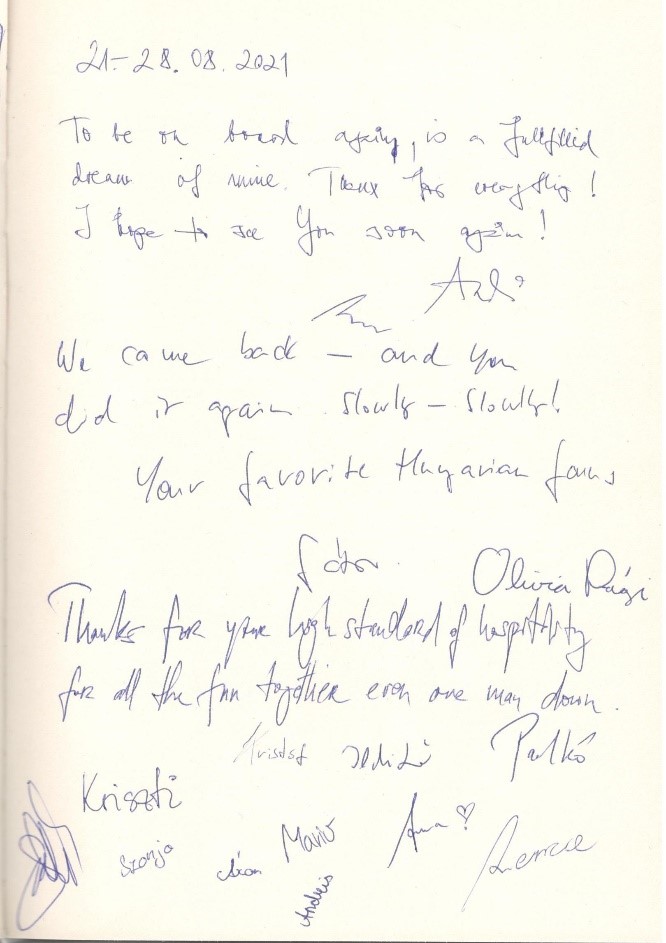 21.-28. 08. 2021
To be on board again, is a fullfilled
dream of mine. Thanx for everything!
I hope to see You soon again!
We came back – and you
did it again slowly – slowly!
Your favorite Hungarian fans
Olivia Rági
Thanks for your high standard of hospitality
for all the fun together even one man down.
Kristóf Palkó
Kriszti
Szonja Áron Mario Anna
Andris Bence